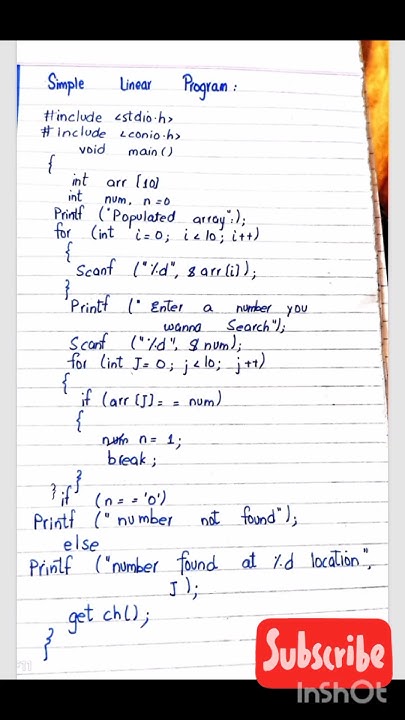 Simple Linear Program:
#include <stdio.h>
#include <conio.h>
void main()
{
int arr [10]
int num, n=0
Printf ("Populated array":);
for (int i=0; i<10; i++)
{
Scanf ("%d", & arr[i]);
}
Printf (" Enter a number you
wanna Search");
Scanf ("%d", & num);
for (int J=0; j<10; j++)
{
if (arr [J]= = num)
{
n= 1;
break;
}
}
if (n= ='0')
Printf (" number not found");
else
Printf ("number found at %d location",
J);
get ch();
}
Subscribe
InShOt